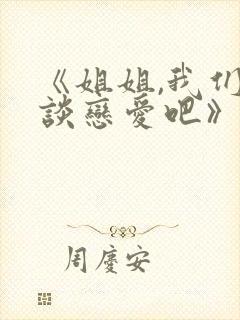 《姐姐,我们
談戀愛吧》
周慶安